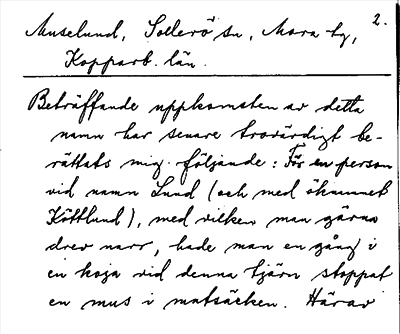 2.
Muselund, Sollerö sn, Mora tg,
Kopparb. län.
Beträffande uppkomsten av detta
namn har senare trovärdigt be-
rättats mig följande: För en person
vid namn Lund (och med öknamnet
Köttlund), med vilken man gärna
drev narr, hade man en gång i
en koja vid denna tjärn stoppat
en mus i matsäcken. Härav